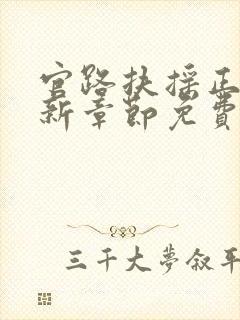 官路扶摇正
新章节免费
三千大梦叙平